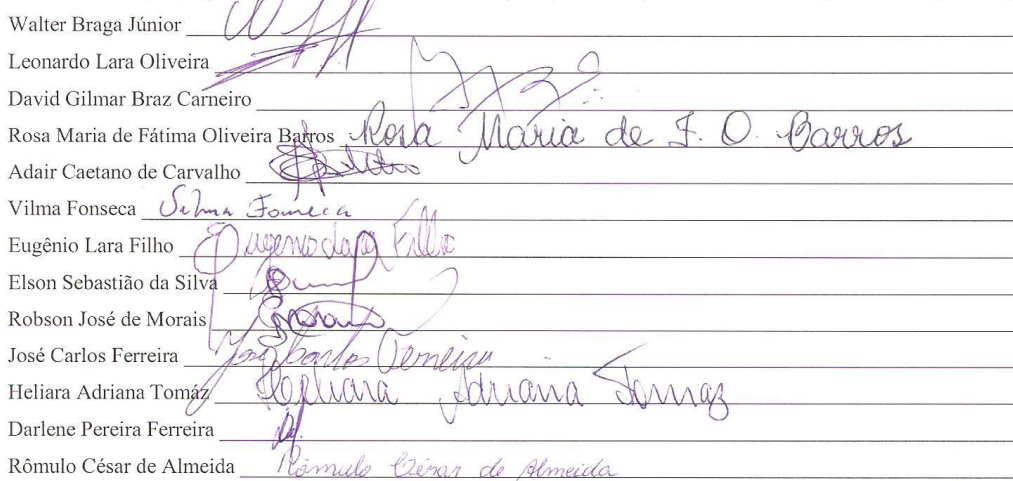 Walter Braga Júnior
Leonardo Lara Oliveira
David Gilmar Braz Carneiro
Rosa Maria de Fátima Oliveira Barros Rosa Maria de F. O. Barros
Adair Caetano de Carvalho
Vilma Fonseca Vilma Fonseca
Eugênio Lara Filho Eugenio Lara Filho
Elson Sebastião da Silva
Robson José de Morais
José Carlos Ferreira José Carlos Ferreira
Heliara Adriana Tomáz Heliara Adriana Tomaz
Darlene Pereira Ferreira
Rômulo César de Almeida Rômulo César de Almeida